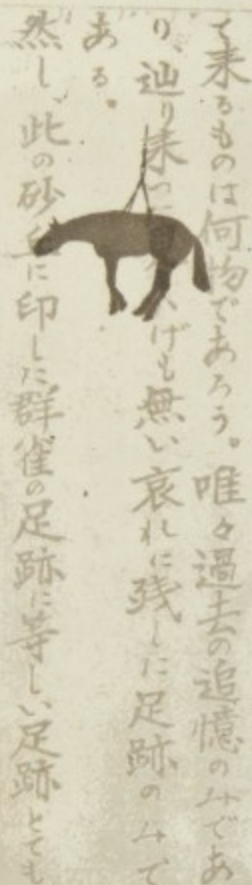 て来るものは何物であろう。唯々過去の追憶のみであ
り、辿り来つ げも無い哀れに残した足跡のみで
ある。
然し、此の砂丘に印した群雀の足跡に等しい足跡とても